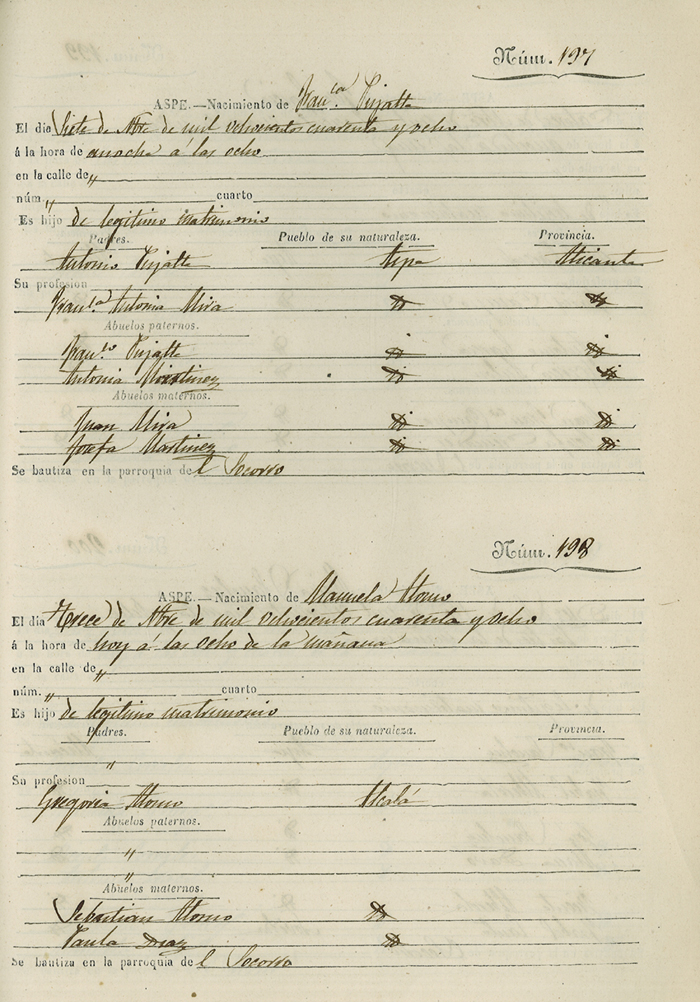 Núm. 197
ASPE.—Nacimiento de Fran.ca Pujalte
El dia Siete de Nbre de mil ochocientos cuarenta y ocho
á la hora de anoche á las ocho
en la calle de "
núm " cuarto
Es hijo de legitimo matrimonio
Padres. Pueblo de su naturaleza. Provincia.
Antonio Pujalte Aspe Alicante
Su profesion
Fran.ca Antonia Mira id id
Abuelos paternos.
Fran.co Pujalte id id
Antonia Martinez id id
Abuelos maternos.
Juan Mira id id
Josefa Martinez id id
Se bautiza en la parroquia de l Socorro
Núm. 198
ASPE.—Nacimiento de Manuela Alonso
El dia Trece de Nbre de mil ochocientos cuarenta y ocho
á la hora de hoy á las ocho de la mañana
en la calle de "
núm. " cuarto
Es hijo de legitimo matrimonio
Padres. Pueblo de su naturaleza. Provincia.
"
Su profesion
Gregoria Alonso Alcalá
Abuelos paternos.
"
"
Abuelos maternos.
Sebastian Alonso id
Paula Diaz id
Se bautiza en la parroquia de l Socorro